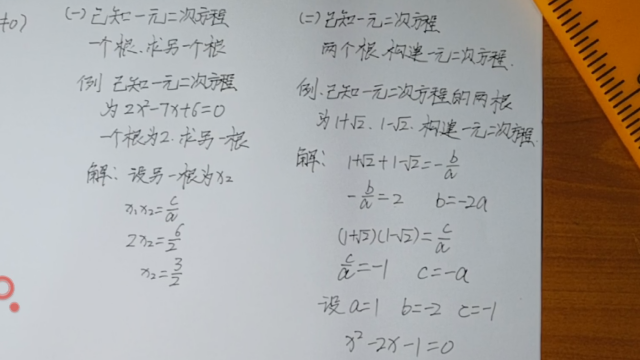 ≠0)
(一)已知一元二次方程
一个根.求另一个根
例 已知一元二次方程
为2x²-7x+6=0
一个根为2.求另一根
解：设另一根为x₂
x₁x₂=c/a
2x₂=6/2
x₂=3/2
(二)已知一元二次方程
两个根.构建一元二次方程.
例.已知一元二次方程的两根
为1+√2、1-√2.构建一元二次方程.
解：1+√2+1-√2=-b/a
-b/a=2 b=-2a
(1+√2)(1-√2)=c/a
c/a=-1 c=-a
设a=1 b=-2 c=-1
x²-2x-1=0